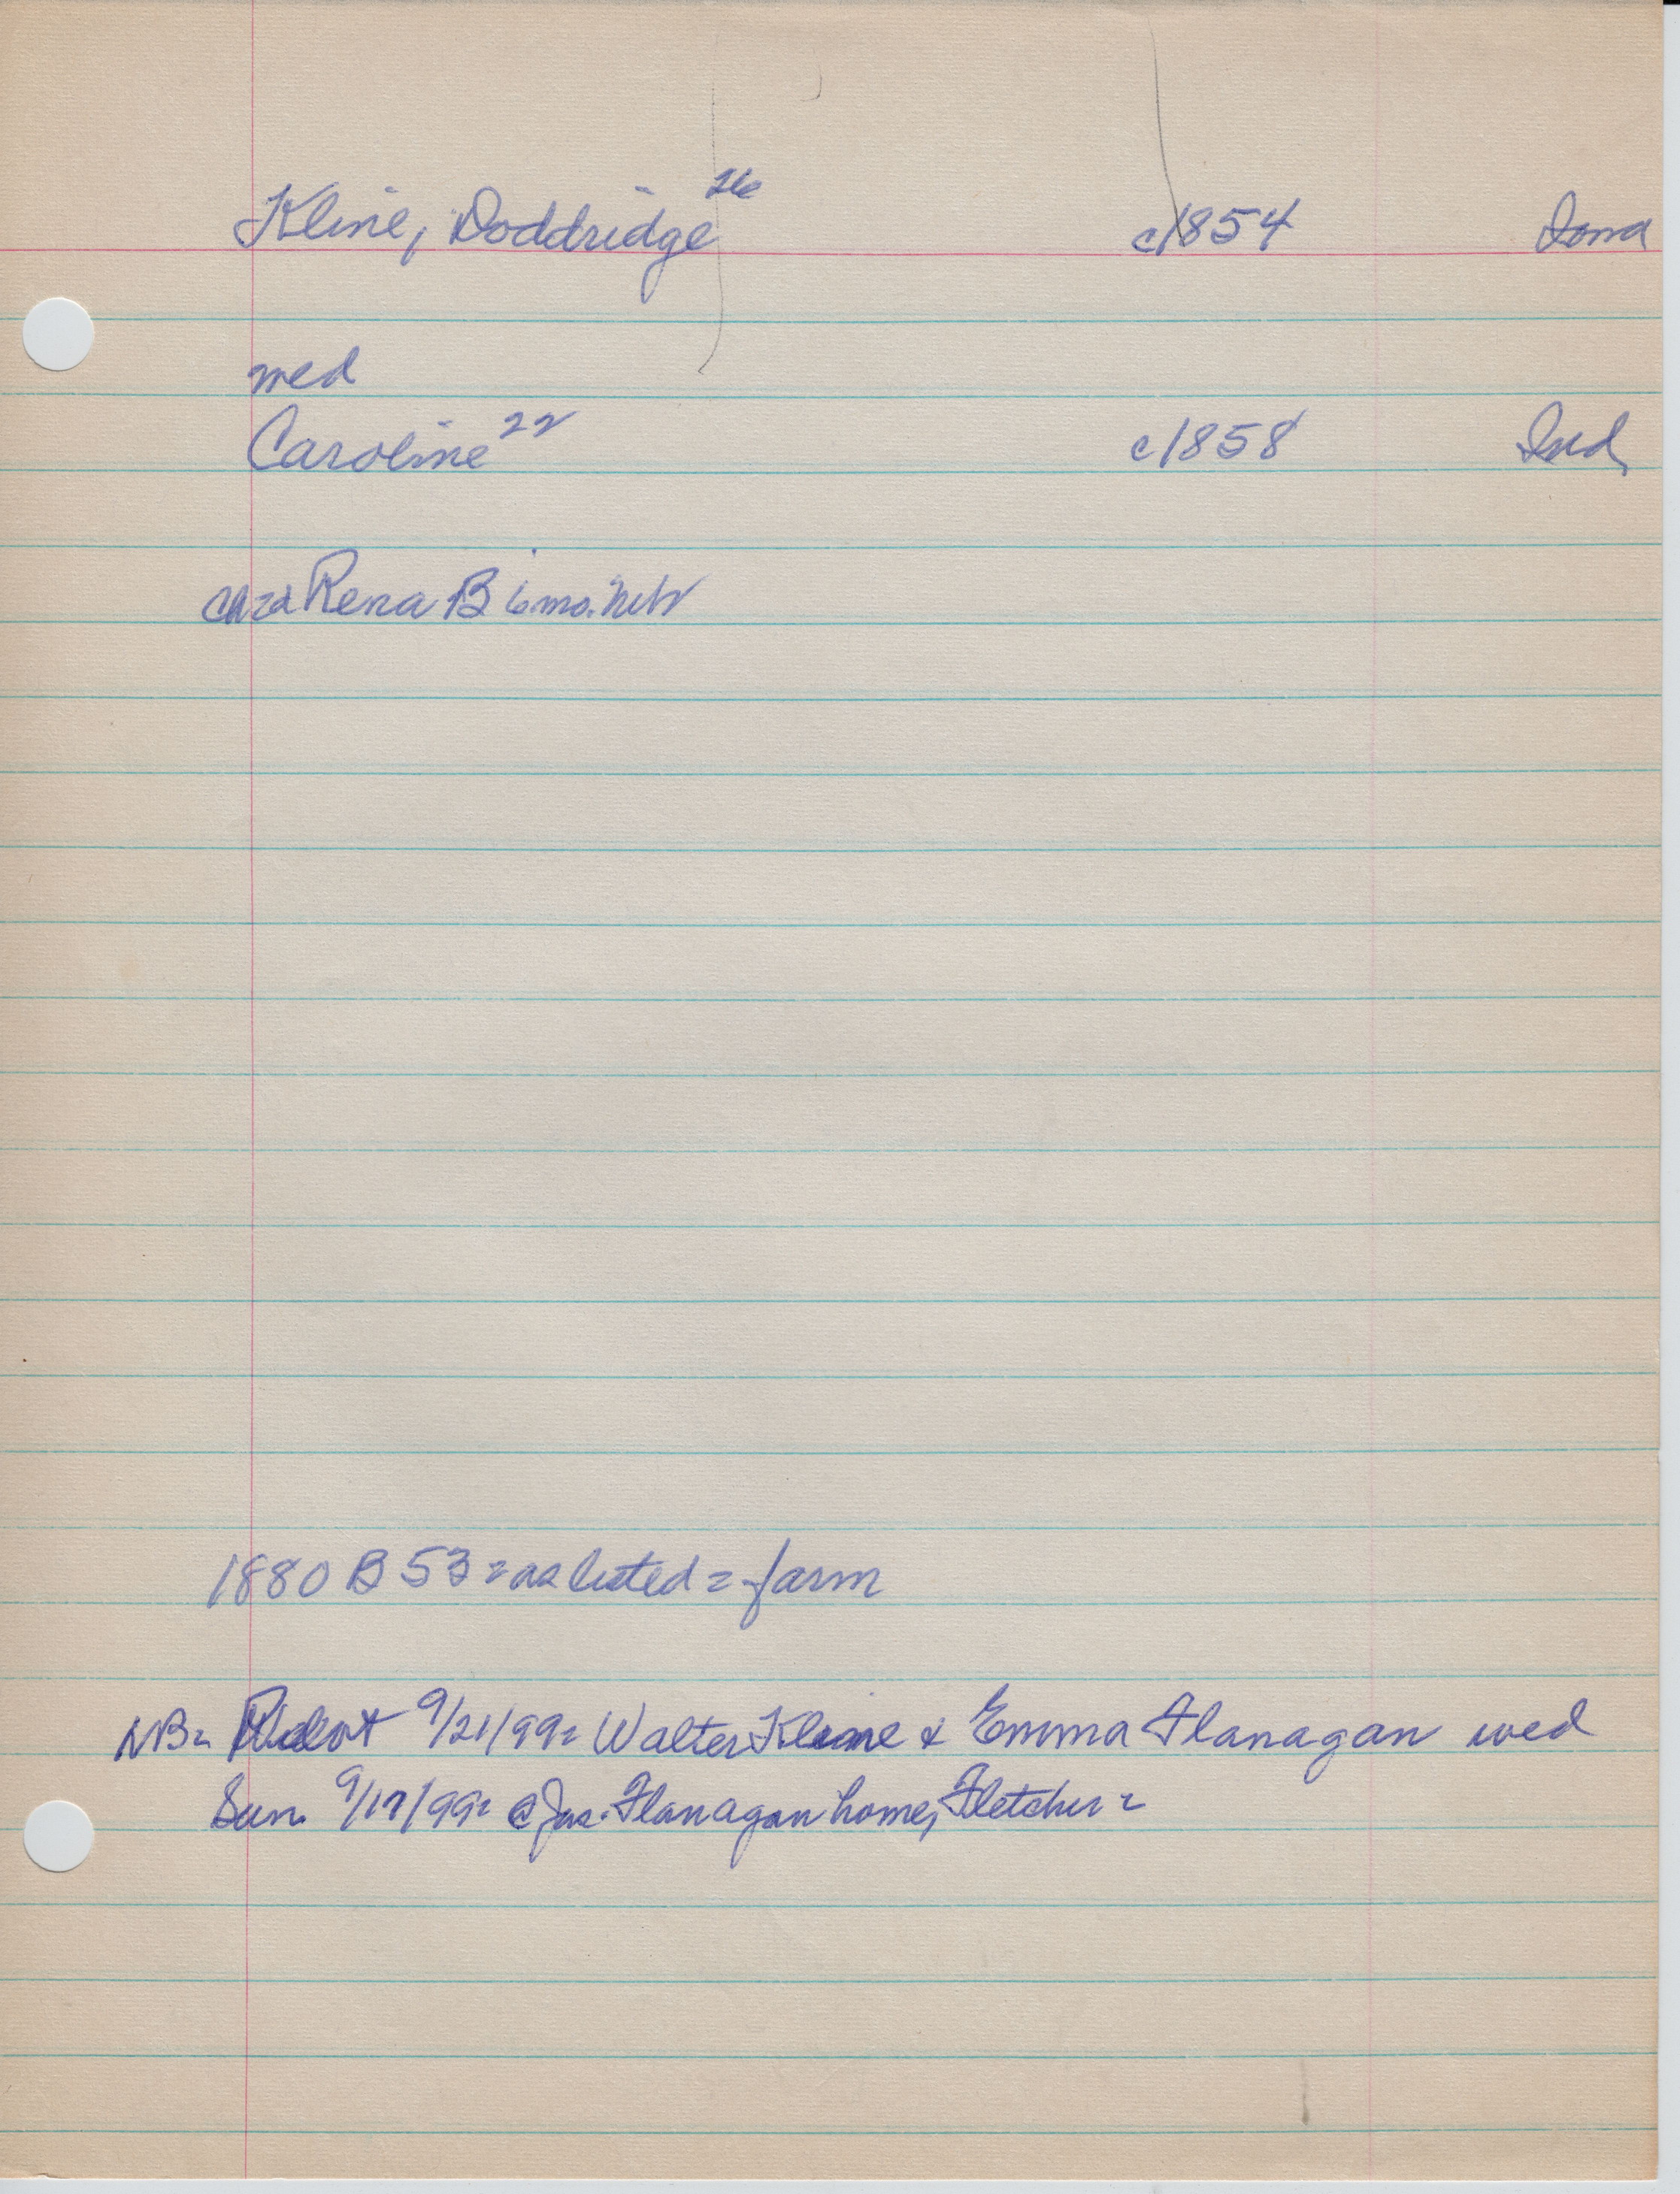 Kline, Doddridge 26 c1854 Iowa
med
Caroline 22 c1858 Ind
Rena B 6 mo. Neb
1880 B 53 = as listed = farm
NB = 9/21/99 = Walter Kline & Emma Flanagan wed
Sun. 9/17/99 = @ Jas. Flanagan home, Fletcher =